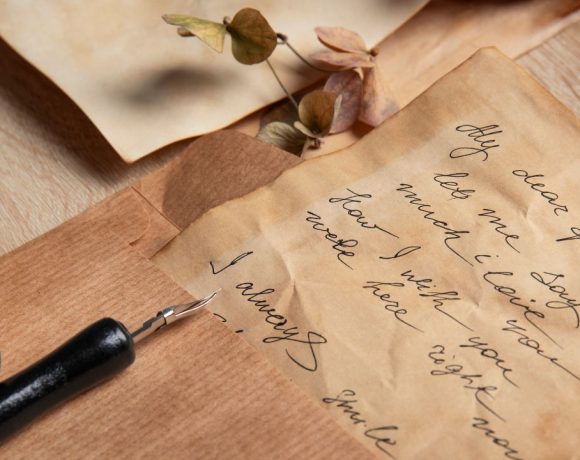 My dear
let me say
much i love you
How I wish you
were here right now
I always smile